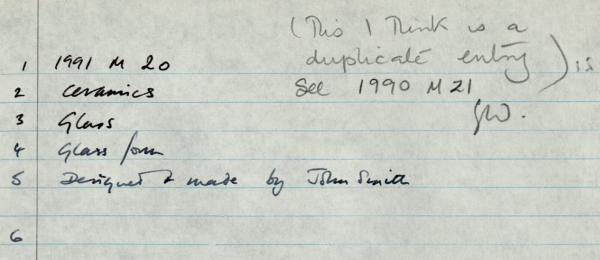 (This I think is a
duplicate entry) is
See 1990 M21
GW.
1 1991 M 20
2 Ceramics
3 Glass
4 Glass form
5 Designed & made by John Smith
6